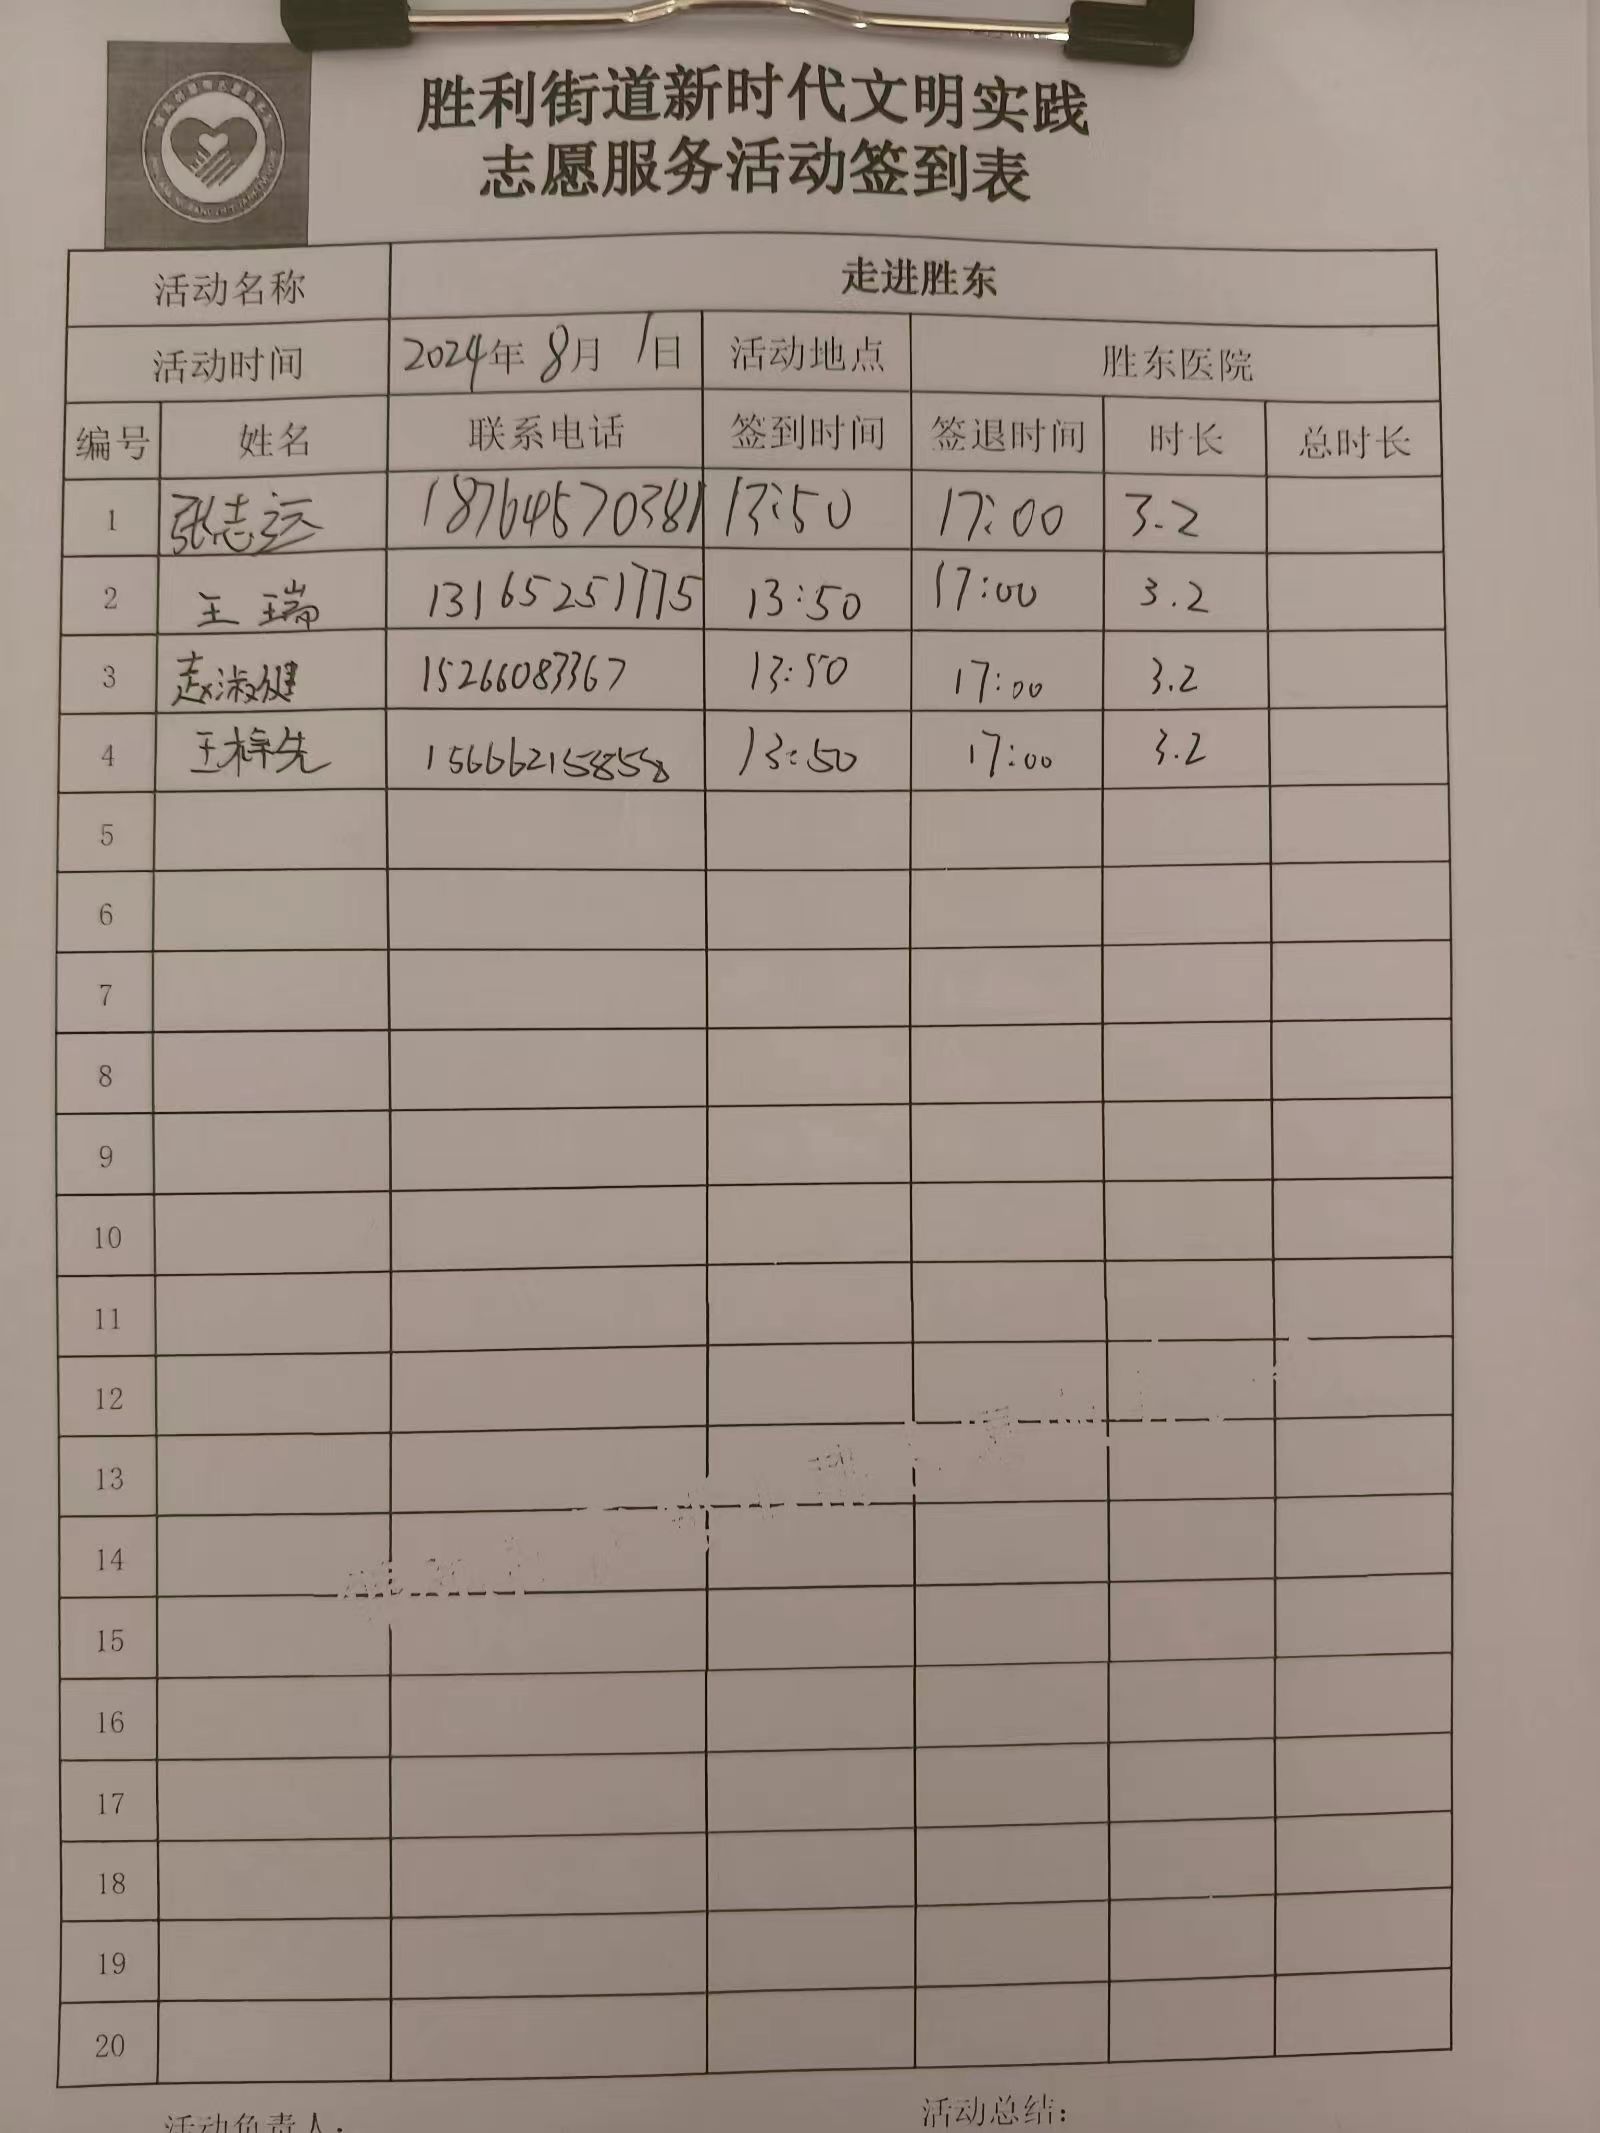 胜利街道新时代文明实践
志愿服务活动签到表
活动名称 走进胜东
活动时间 2024年 8月 1日 活动地点 胜东医院
编号 姓名 联系电话 签到时间 签退时间 时长 总时长
1 张志远 18764570381 13:50 17:00 3.2
2 王瑞 13165251775 13:50 17:00 3.2
3 赵淑健 15266083367 13:50 17:00 3.2
4 王梓先 13:50 17:00 3.2
5
6
7
8
9
10
11
12
13
14
15
16
17
18
19
20
活动负责人: 活动总结: